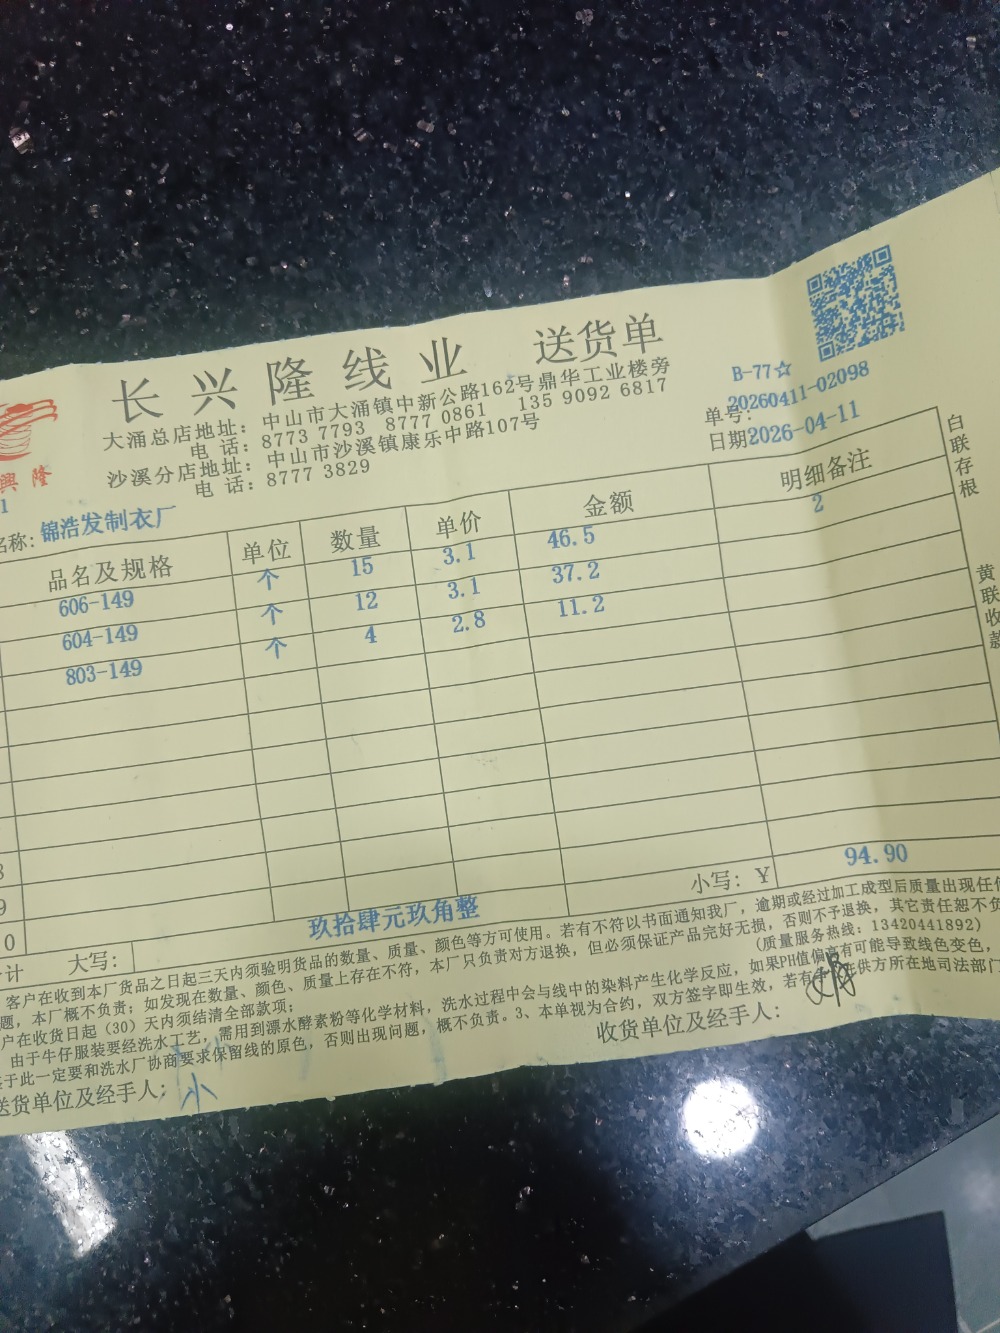 长兴隆线业 送货单
大涌总店地址：中山市大涌镇中新公路162号鼎华工业楼旁
电话：8773 7793 8777 0861 135 9092 6817
沙溪分店地址：中山市沙溪镇康乐中路107号
电话：8777 3829
B-77☆
单号：20260411-02098
日期2026-04-11
興隆
1
名称：锦浩发制衣厂
品名及规格 单位 数量 单价 金额 明细备注
606-149 个 15 3.1 46.5 2
604-149 个 12 3.1 37.2
803-149 个 4 2.8 11.2
8
9
0
计 大写：玖拾肆元玖角整 小写：¥ 94.90
白联存根
黄联收款
客户在收到本厂货品之日起三天内须验明货品的数量、质量、颜色等方可使用。若有不符以书面通知我厂，逾期或经过加工成型后质量出现任何
题，本厂概不负责；如发现在数量、颜色、质量上存在不符，本厂只负责对方退换，但必须保证产品完好无损，否则不予退换，其它责任恕不负
户在收货日起（30）天内须结清全部款项；
(质量服务热线：13420441892)
由于牛仔服装要经洗水工艺，需用到漂水酵素粉等化学材料，洗水过程中会与线中的染料产生化学反应，如果PH值偏高有可能导致线色变色，
基于此一定要和洗水厂协商要求保留线的原色，否则出现问题，概不负责。3、本单视为合约，双方签字即生效，若有 供方所在地司法部门
送货单位及经手人：小
收货单位及经手人：